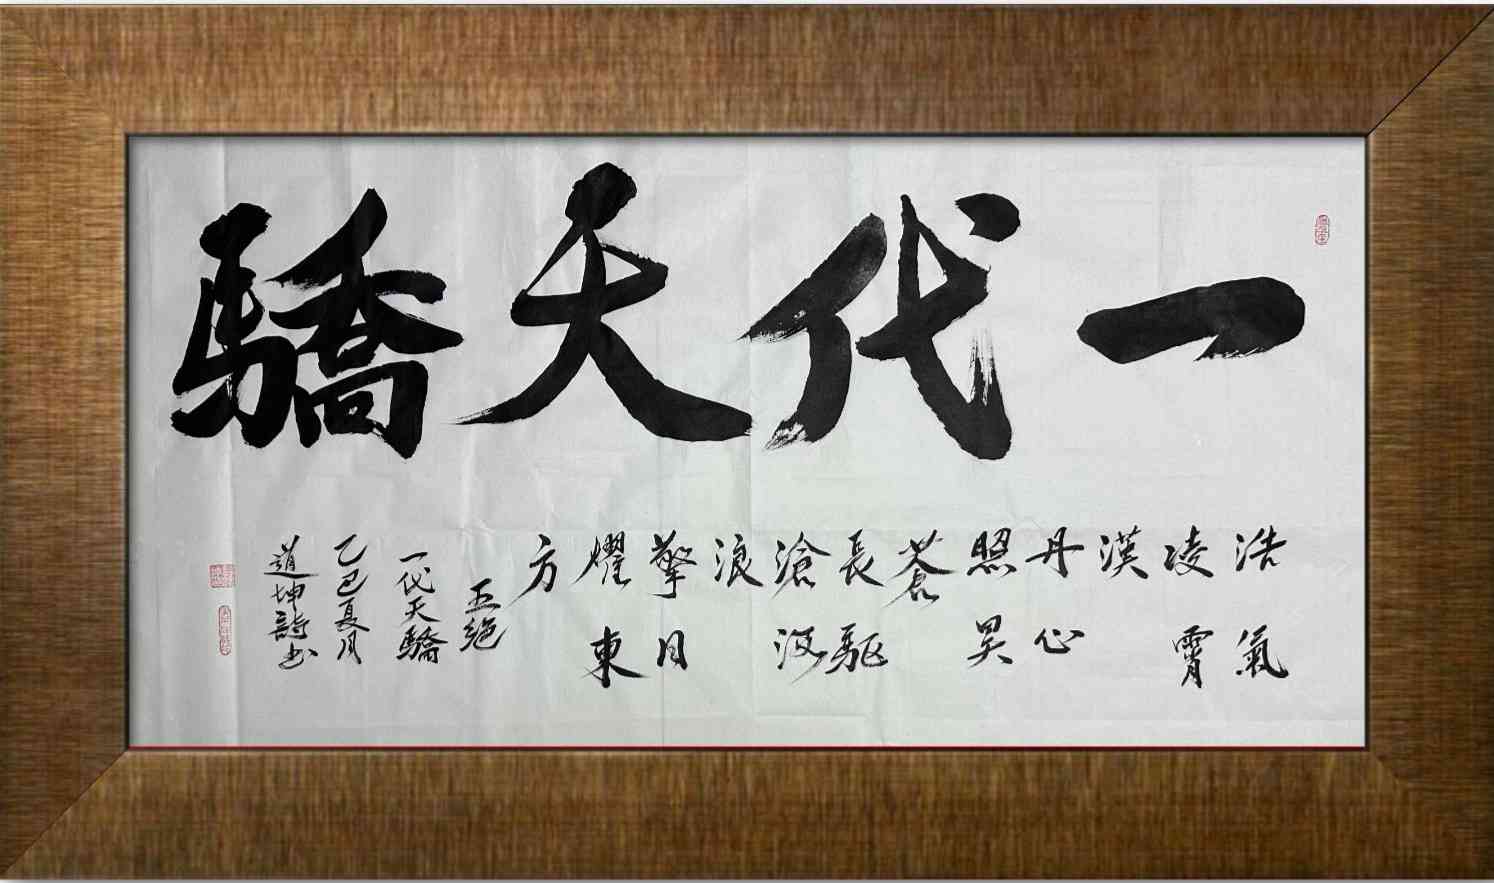 一代天驕
浩氣
凌霄
漢
丹心
照昊
蒼
長驱
滄
浪
擎日
燿東
方
五絕
一代天驕
乙巳夏月
道坤詩书